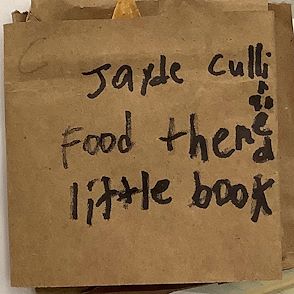 Jayde
Food themed
little book